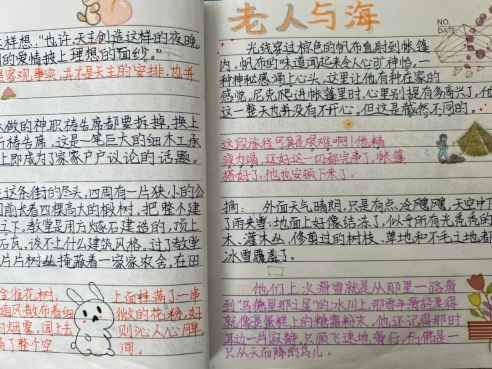 三样想:"也许,天主创造这样的夜晚,
们的爱情披上理想的面纱。"
是客观事实,并不是天主的安排,也并
做的神职祷告席都要拆掉,换上
祈祷席,这是一笔巨大的细木工承
上即成为了家家户户议论的话题。
这条街的尽头,四周有一片狭小的公
前长着四棵高大的椴树,把整个建
了,教堂是用方形石建造的,顶上
石瓦,谈不上什么建筑风格,过了教堂
片片树丛掩蔽着一家家农舍,在田
金雀花树,
随风散布着甜
的烟雾,闻上去
满了整个空
上面挂满了一串
做的花,粉,好
则沁人心脾,
间。
老人与海
NO.
DATE
光线穿过棕色的帆布直射到帐篷
内,帆布的味道闻起来令人心旷神怡,一
种神秘感涌上心头,这里让他有种在家的
感觉。尼克爬进帐篷里时,心里别提有多高兴了,
这一整天也并没有不开心。但这是截然不同的。
这段旅程可真是艰难啊!他精
疲力竭,还好这一切都完事了,帐篷
搭好了,他也安顿下来了。
摘: 外面天气晴朗,只是有点冷飕飕,天空中下
了雨夹雪,地面上好像结冻了,似乎所有光秃秃的
木、灌木丛、修剪过的树枝、草地和不毛之地都
冰雪覆盖了。
他们上次滑雪就是从那里一路滑
到"马德里那小屋"的冰川上,那雪干滑轻柔得
就像是蛋糕上的糖霜粉末,他还记得那时
耳边一片寂静,只顾飞速地滑行,仿佛是一
只从天而降的鸟儿。